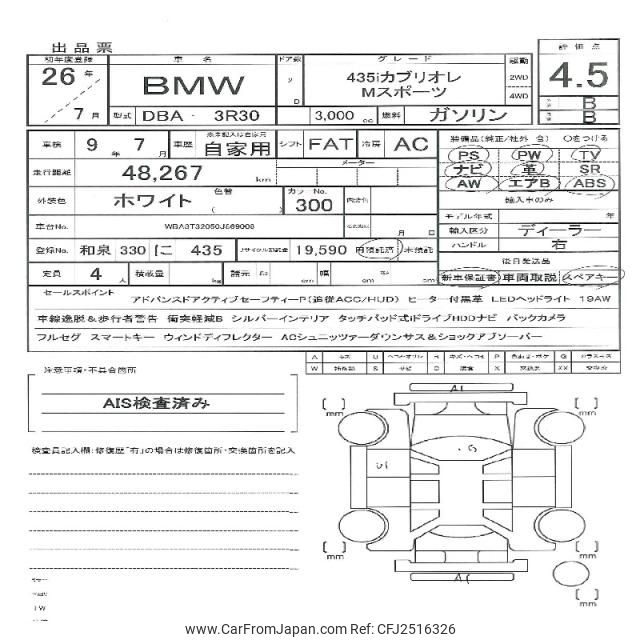 出品票
初年度登録 車名 ドア数 グレード 駆動 評価点
26年 BMW D 435iカブリオレ 2WD 4.5
Mスポーツ 4WD
7月 型式 DBA - 3R30 3,000 cc 燃料 ガソリン B
B
車検 9年7月 車歴 自家用 シフト FAT 冷房 AC 装備品(純正/社外 含) ○をつける
PS PW TV
走行距離 48,267 km メーター ナビ 革 SR
AW エアB ABS
外装色 ホワイト 色替 カラーNo. 300 輸入車のみ
モデル年式 年
車台No. 月 日 輸入区分 ディーラー
登録No. 和泉 330 に 435 リサイクル預託金 19,590 預託済 未預託 ハンドル 右
後日発送品
定員 4人 積載量 kg 諸元 長 cm 幅 cm cm 新車保証書 車両取説 スペアキー
セールスポイント アドバンスドアクティブセーフティーP(追従ACC/HUD) ヒーター付黒革 LEDヘッドライト 19AW
車線逸脱&歩行者警告 衝突軽減B シルバーインテリア タッチパッド式iドライブHDDナビ バックカメラ
フルセグ スマートキー ウィンドディフレクター ACシュニッツァーダウンサス&ショックアブソーバー
注意事項・不具合箇所
AIS検査済み
検査員記入欄:修復歴「有」の場合は修復箇所・交換箇所を記入
A1
mm mm
U1
. G
mm mm
mm
www.CarFromJapan.com Ref: CFJ2516326